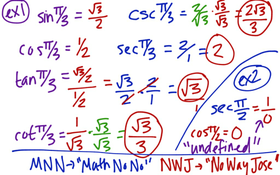 ex1 sin π/3 = √3/2
csc π/3 = 2/√3 · √3/√3 = 2√3/3
cos π/3 = 1/2
sec π/3 = 2/1 = 2
tan π/3 = √3/2 / 1/2 = √3/2 · 2/1 = √3/1 = √3
cot π/3 = 1/√3 · √3/√3 = √3/3
ex2
sec π/2 = 1/0
cos π/2 = 0
"undefined"
MNN → "Math No No!" NWJ → "No Way Jose"